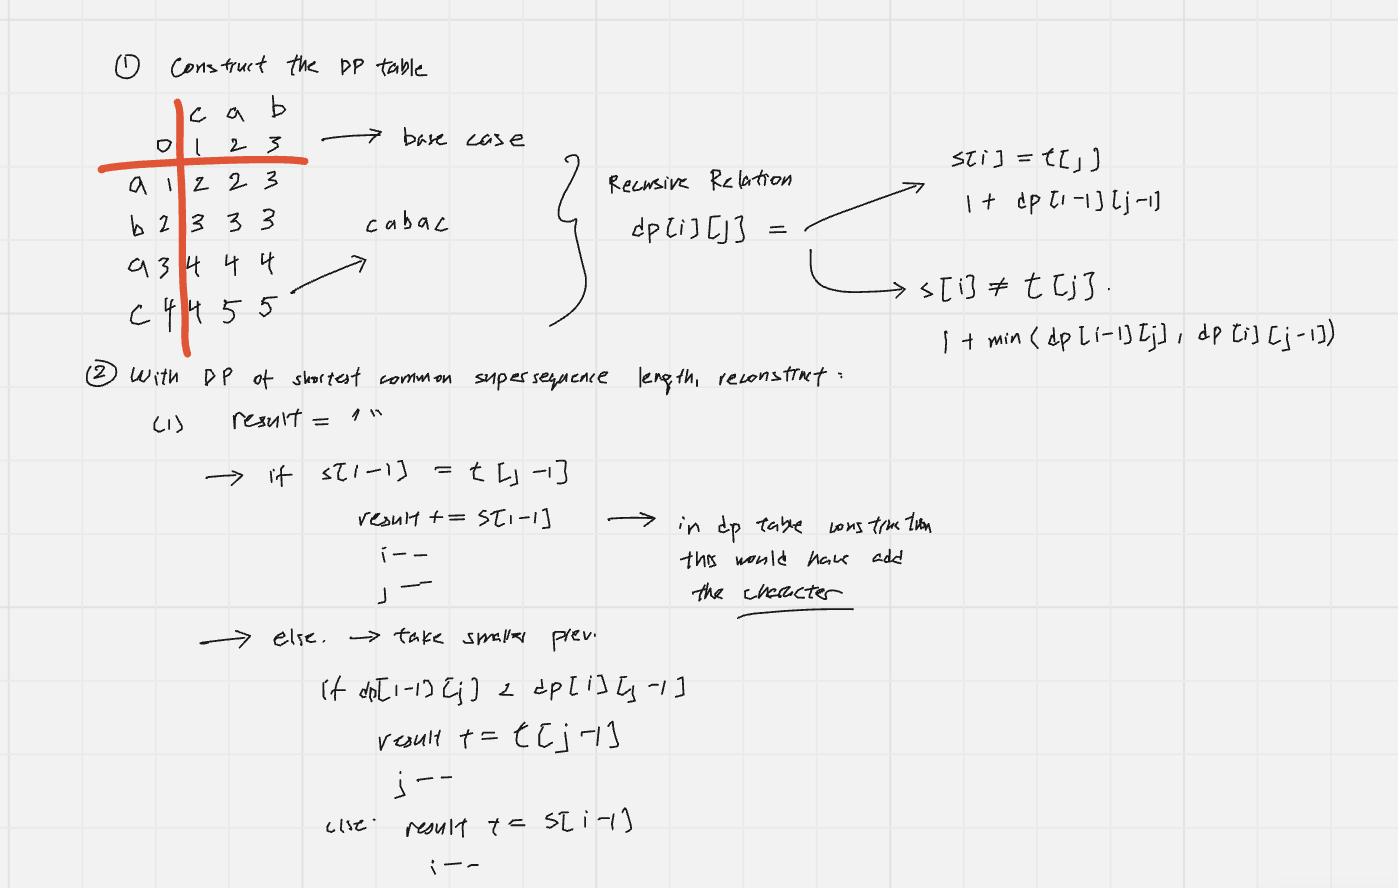 ① Construct the DP table
c a b
0 1 2 3 → base case
a 1 2 2 3
b 2 3 3 3
a 3 4 4 4
c 4 4 5 5
cabac
Recursive Relation
dp[i][j] =
s[i] = t[j]
1 + dp[i-1][j-1]
s[i] ≠ t[j].
1 + min(dp[i-1][j], dp[i][j-1])
② With DP of shortest common supersequence length, reconstruct:
(1) result = ""
→ if s[i-1] = t[j-1]
result += s[i-1] → in dp table construction
i-- this would have add
j-- the character
→ else. → take smaller prev.
if dp[i-1][j] > dp[i][j-1]
result += t[j-1]
j--
else. result += s[i-1]
i--